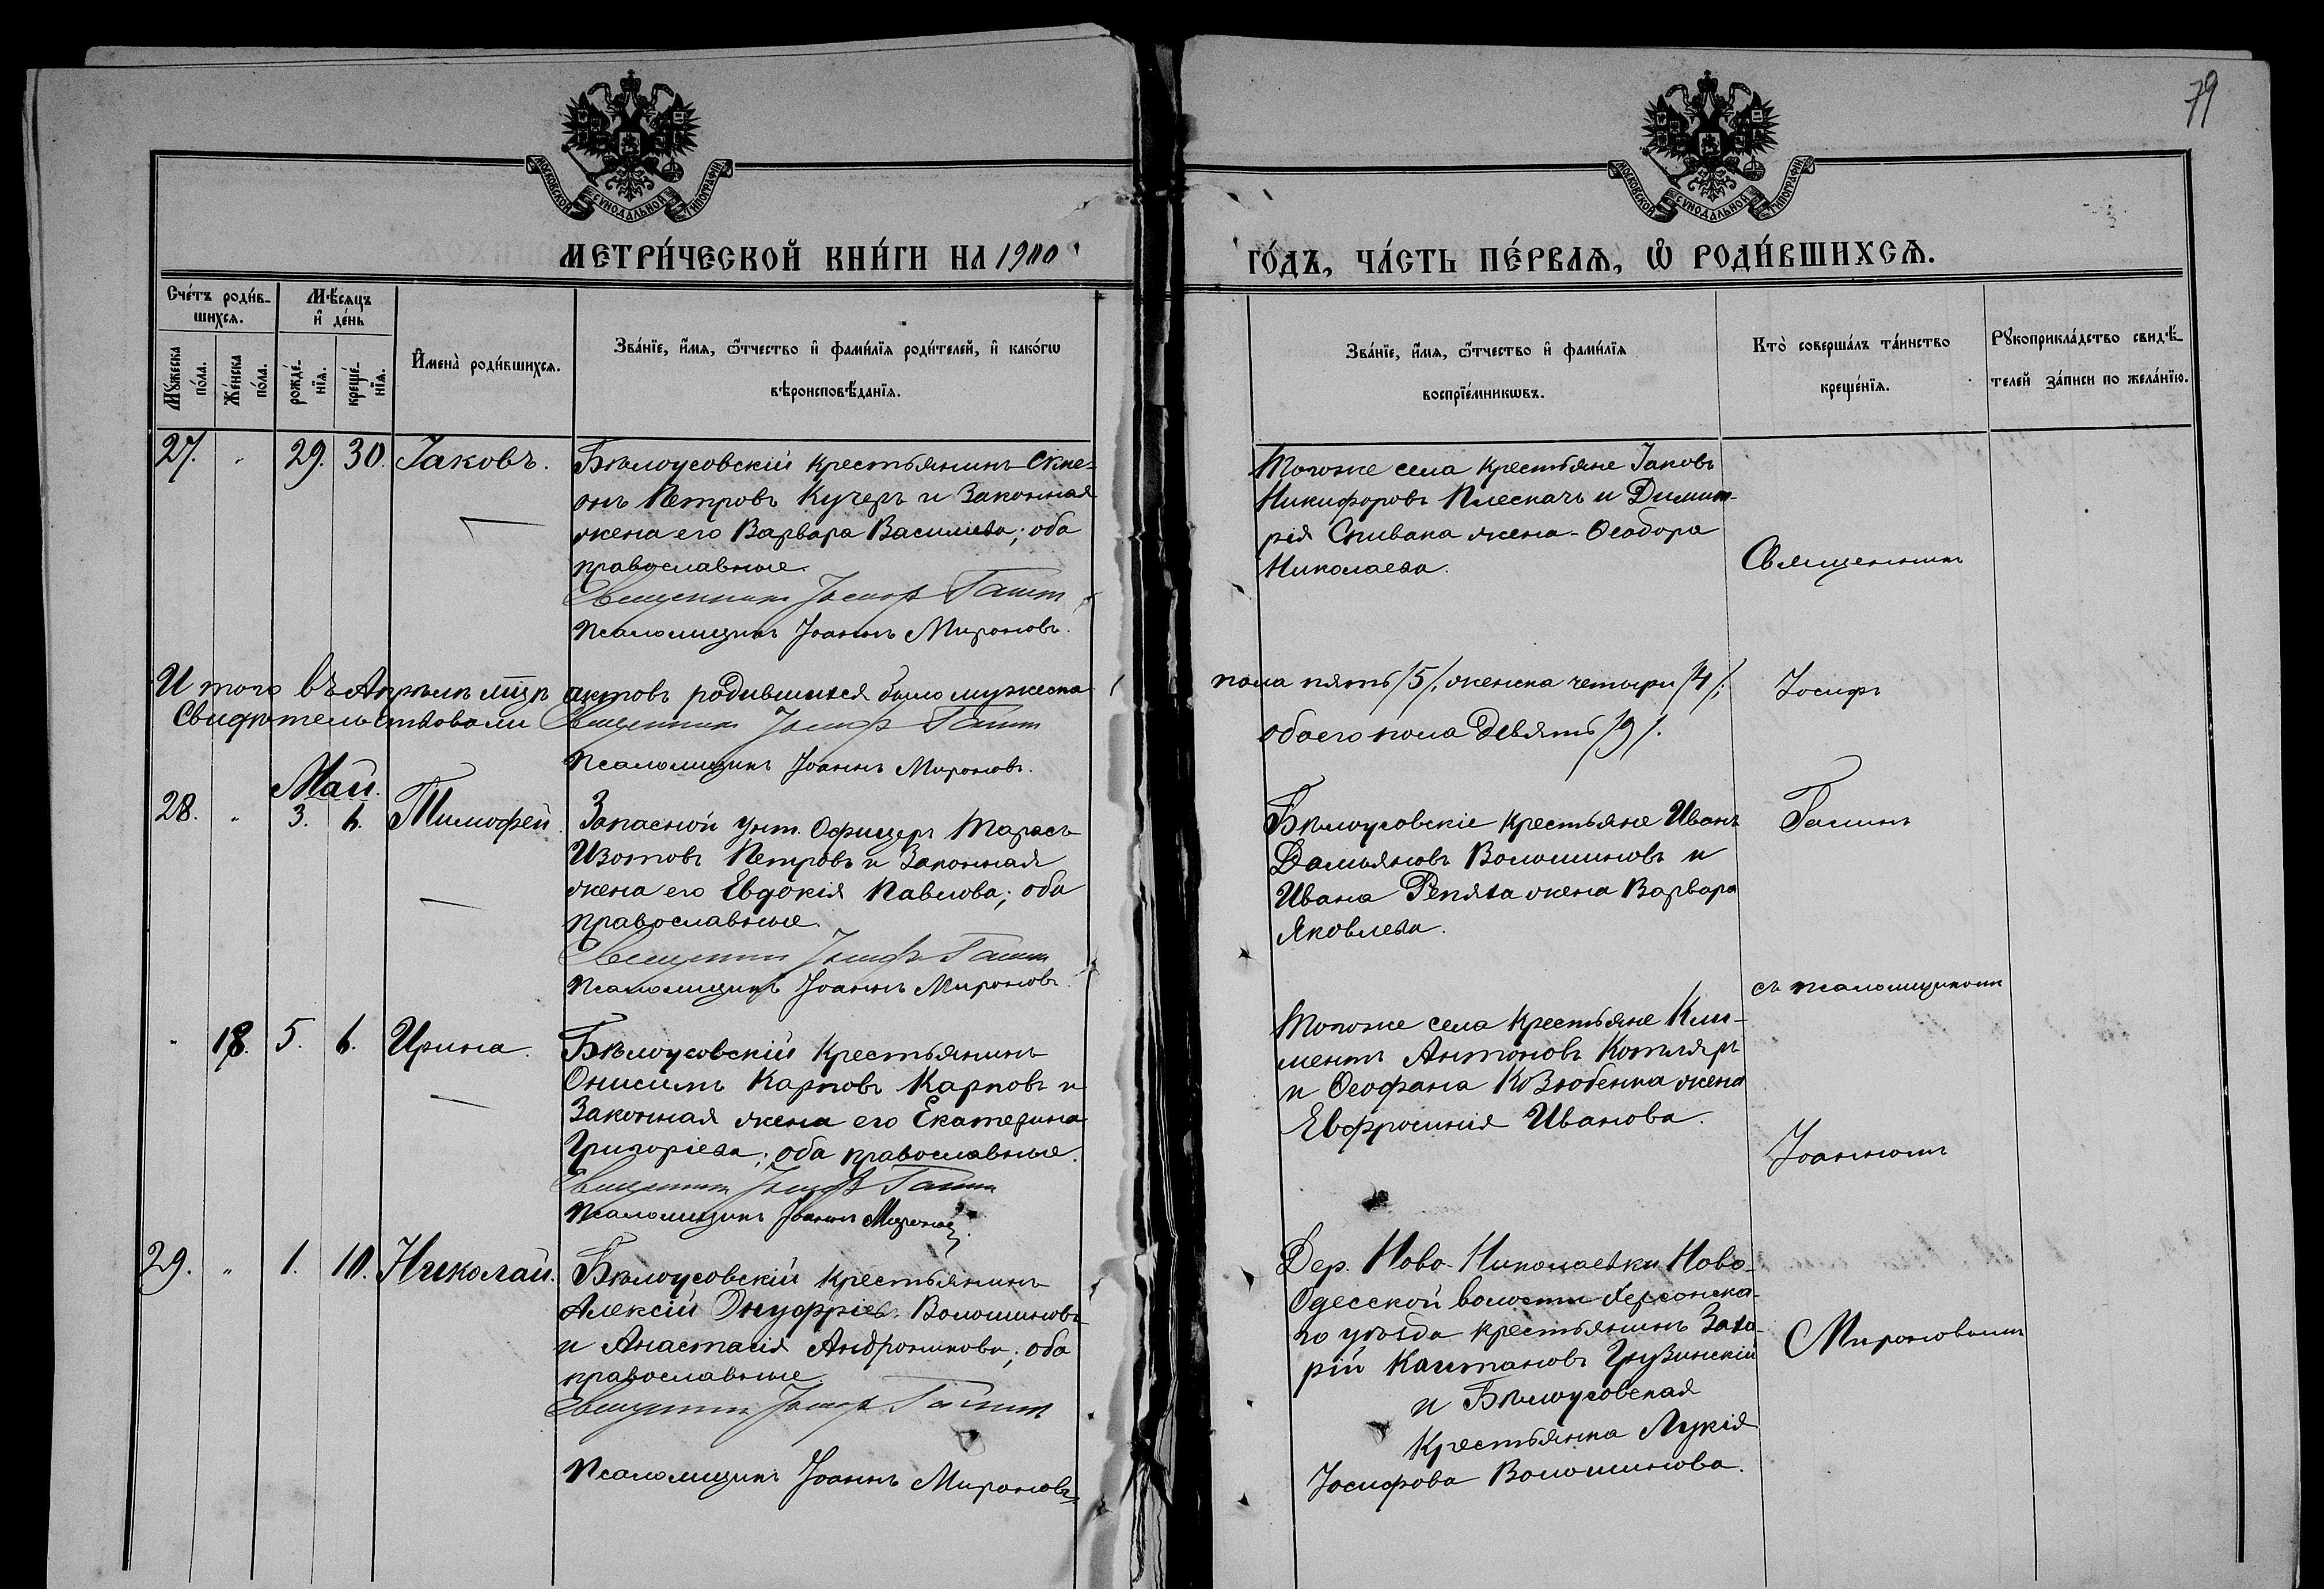 79
МОСКОВСКОЙ СѴНОДАЛЬНОЙ ТИПОГРАФІИ
МОСКОВСКОЙ СѴНОДАЛЬНОЙ ТИПОГРАФІИ
МЕТРИ́ЧЕСКОЙ КНИ́ГИ НА 1900
ГО́ДЪ, ЧА́СТЬ ПЕ́РВАѦ, Ѡ҆ РОДИ́ВШИХСѦ.
Сче́тъ роди́в-
шихсѧ.
Мѣ́сѧцъ
и҆ де́нь
Мꙋ́жеска
по́ла.
Же́нска
по́ла.
рожде́-
нїѧ.
креще́-
нїѧ.
И҆мена̀ роди́вшихсѧ.
Зва́нїе, и҆́мѧ, ѻ҆́тчество и҆ фами́лїѧ роди́телей, и҆ како́гѡ
вѣроисповѣ́данїѧ.
Зва́нїе, и҆́мѧ, ѻ҆́тчество и҆ фами́лїѧ
воспрїе́мникѡвъ.
Кто̀ соверша́лъ та́инство
креще́нїѧ.
Рꙋкоприкла́дство свидѣ́-
телей за́писи по жела́нїю.
27. " 29. 30. Іаковъ.
Бѣлоусовскій крестьянинъ
онъ Петровъ Кучеръ и законная
жена его Варвара Васильева; оба
православные.
Священникъ Іосифъ
Псаломщикъ Іоаннъ Мироновъ.
Тогоже села крестьяне Іаковъ
Никифоровъ Плескачъ и Димит-
рія Спивака жена Ѳеодора
Николаева.
Священникъ
Итого въ Апрѣлѣ мцѣ актовъ родившихся было мужеска
пола пять /5/, женска четыри /4/;
Свидѣтельствовали Священникъ Іосифъ
обоего пола девять /9/.
Псаломщикъ Іоаннъ Мироновъ.
Іосифъ
Май.
28. " 3. 6. Тимофей.
Запасной унт. Офицеръ Тарасъ
Изотовъ Петровъ и законная
жена его Евдокія Павлова; оба
православные.
Священникъ Іосифъ
Псаломщикъ Іоаннъ Мироновъ.
Бѣлоусовскіе крестьяне Иванъ
Дамьяновъ Волошиновъ и
Ивана Репяха жена Варвара
Яковлева.
съ псаломщикомъ
" 18. 5. 6. Ирина.
Бѣлоусовскій крестьянинъ
Онисимъ Карповъ Карповъ и
законная жена его Екатерина
Григоріева; оба православные.
Священникъ Іосифъ
Псаломщикъ Іоаннъ Мироновъ.
Тогоже села крестьяне Кли-
ментъ Антоновъ Котляръ
и Ѳеофана Козюбенка жена
Евфросинія Иванова.
Іоанномъ
29. " 1. 10. Николай.
Бѣлоусовскій крестьянинъ
Алексій Онуфріевъ Волошиновъ
и Анастасія Андроникова; оба
православные.
Священникъ Іосифъ
Псаломщикъ Іоаннъ Мироновъ.
Дер. Ново-Николаевки Ново-
Одесской волости Херсонска-
го уѣзда крестьянинъ Заха-
рій Каитановъ Грузинскій
и Бѣлоусовская
крестьянка Лукія
Іосифова Волошинова.
Мироновымъ